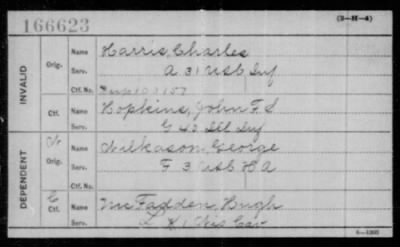 166623
(3-H-4)
INVALID
Orig.
Name Harris, Charles
Serv. A 31 USC Inf
Ctf. No.
Ctf.
Name Hopkins, John F. S
Serv. G 40 Ill Inf
DEPENDENT
Orig.
Name Wilkason, George
Serv. F 3 USC HA
Ctf. No.
C
Ctf.
Name McFadden, Hugh
Serv. L 1 Wis Cav